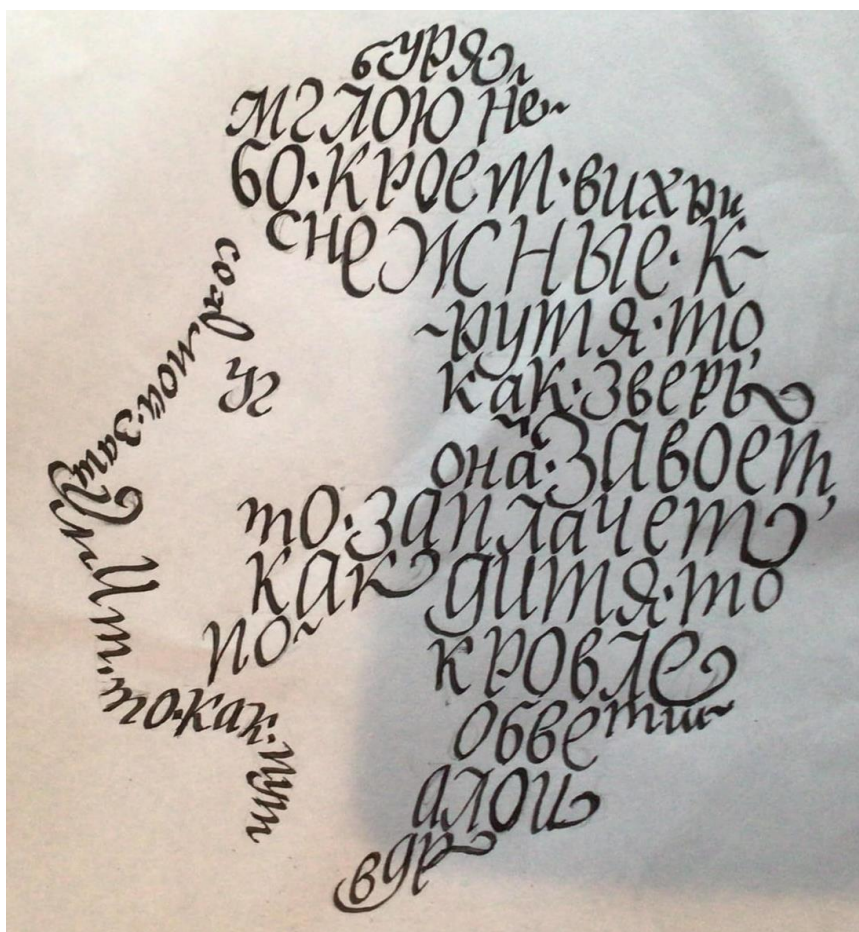 буря
мглою не~
бо·кроет·вихри
снежные·к~
~рутя·то,
как·зверь
она·завоет,
то·заплачет,
как дитя·то
по~
кровле
обветш~
алой
вдр
уг
солomой·заш
уршит·
то·как·пут